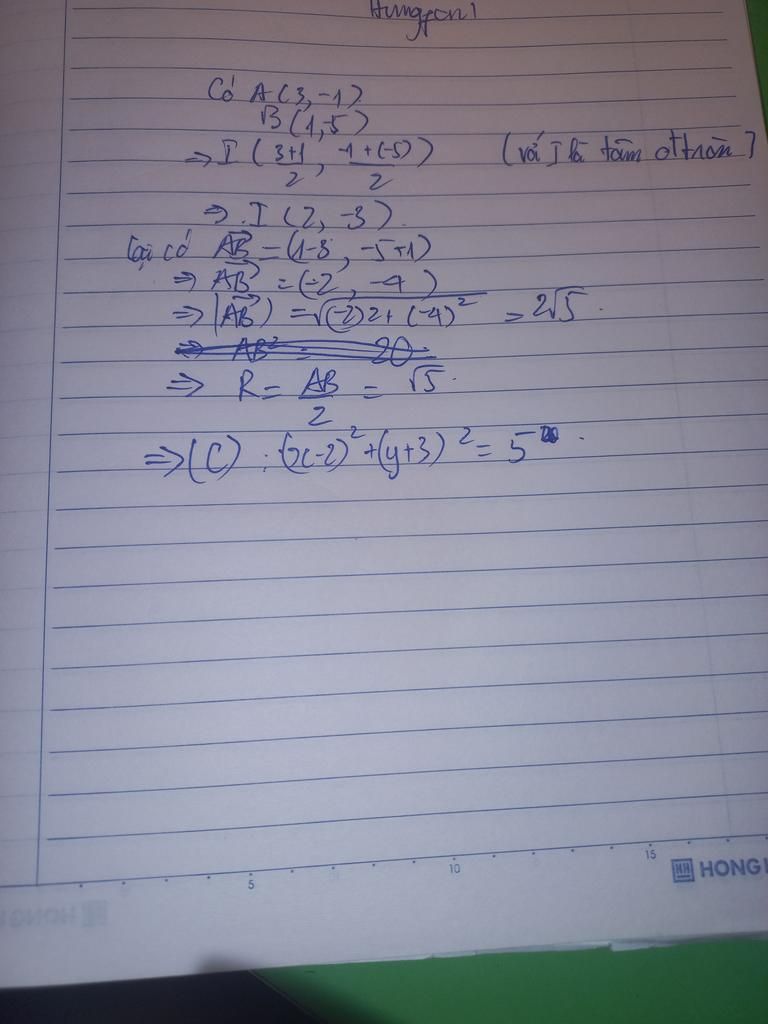 Hungpon1
Có A(3,-1)
B(1,-5)
⇒ I (3+1/2, -1+(-5)/2) (với I là tâm đttròn)
⇒ I (2, -3)
Lại có AB = (1-3, -5+1)
⇒ AB = (-2, -4)
⇒ |AB| = √(-2)2 + (-4)² = 2√5.
⇒ AB² = 20
⇒ R = AB/2 = √5.
⇒ (C) : (x-2)² + (y+3)² = 5.
5 10 15
HONG